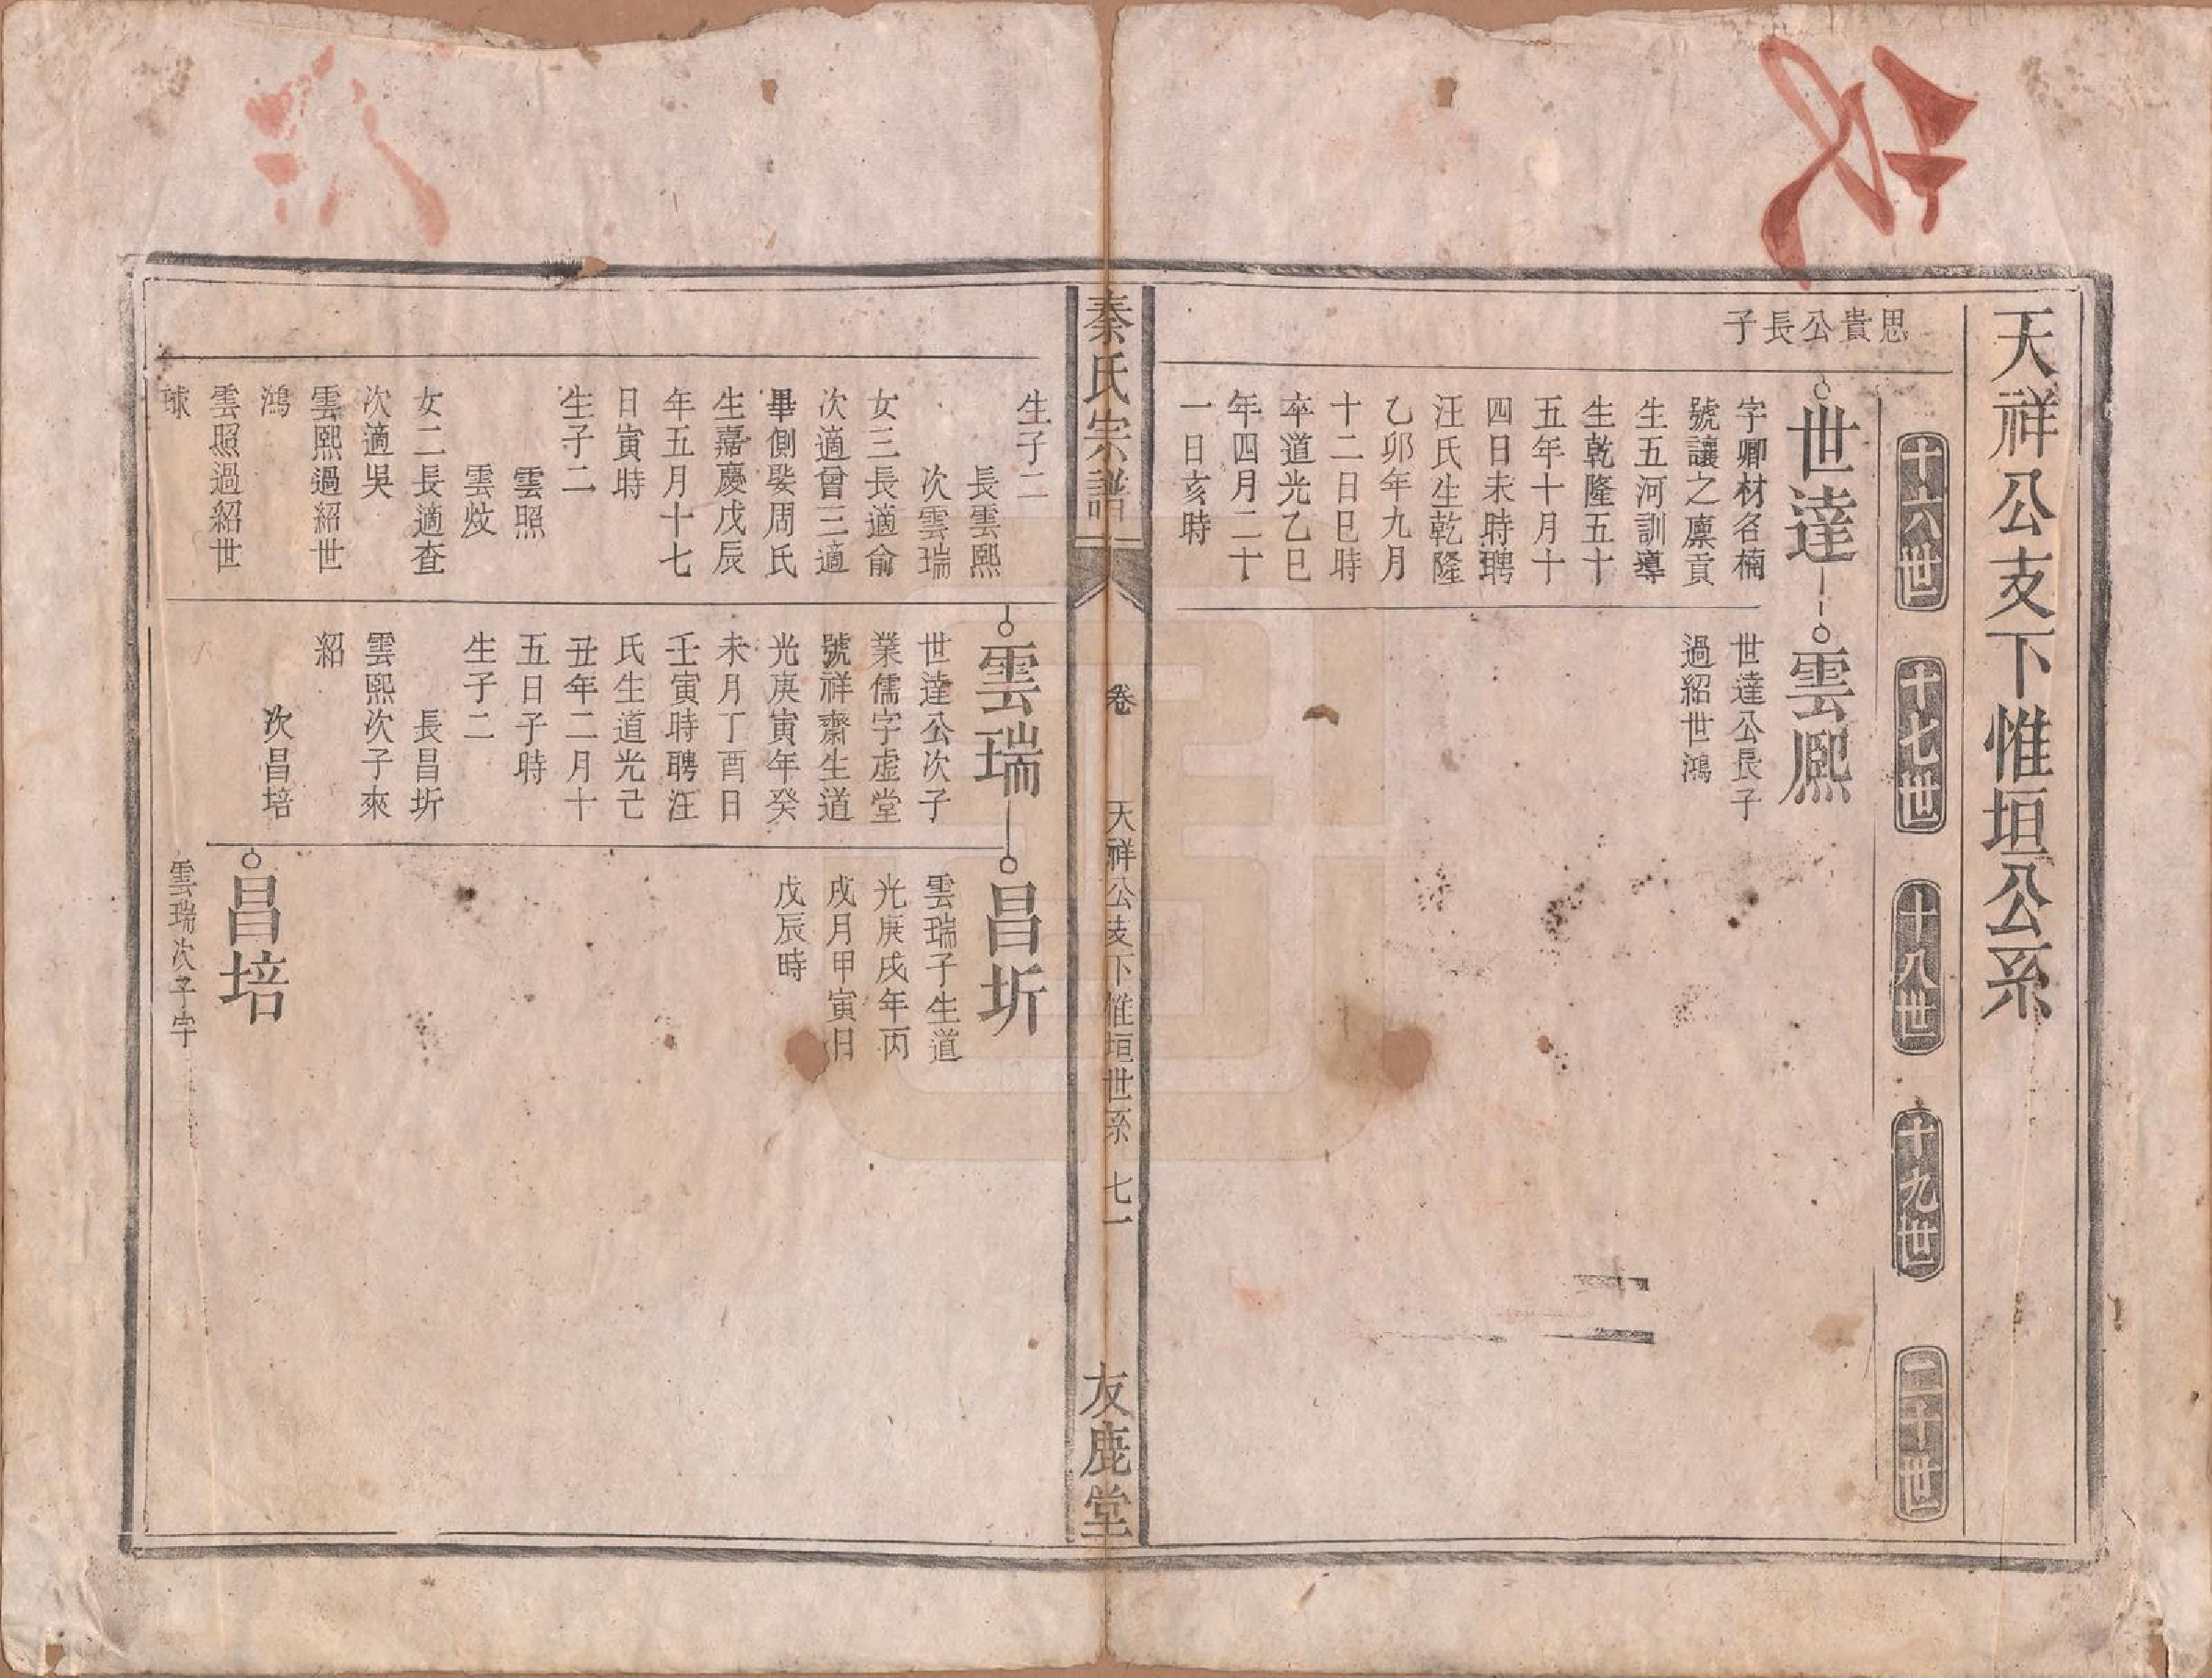 天祥公支下惟垣公系
十六世
十七世
十八世
十九世
二十世
思貴公長子
世達
字卿材名楠
號讓之廪貢
生五河訓導
生乾隆五十
五年十月十
四日未時聘
汪氏生乾隆
乙卯年九月
十二日巳時
卒道光乙巳
年四月二十
一日亥時
雲熈
世達公長子
過紹世鴻
秦氏宗譜
卷
天祥公支下惟垣世系
七一
友鹿堂
生子二
長雲熙
次雲瑞
女三長適俞
次適曾三適
畢側娶周氏
生嘉慶戊辰
年五月十七
日寅時
生子二
雲照
雲炆
女二長適查
次適吳
雲熙過紹世
鴻
雲照過紹世
球
雲瑞
世達公次子
業儒字虚堂
號祥齋生道
光庚寅年癸
未月丁酉日
壬寅時聘汪
氏生道光己
丑年二月十
五日子時
生子二
長昌圻
雲熙次子來
紹
次昌培
昌圻
雲瑞子生道
光庚戌年丙
戌月甲寅日
戊辰時
昌培
雲瑞次子字